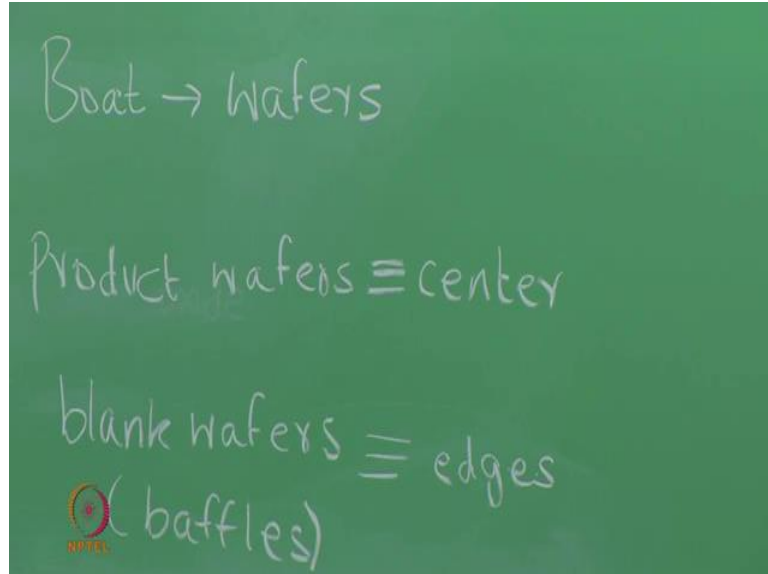 Boat → wafers
Product wafers ≡ center
blank wafers ≡ edges
(baffles)
NPTEL